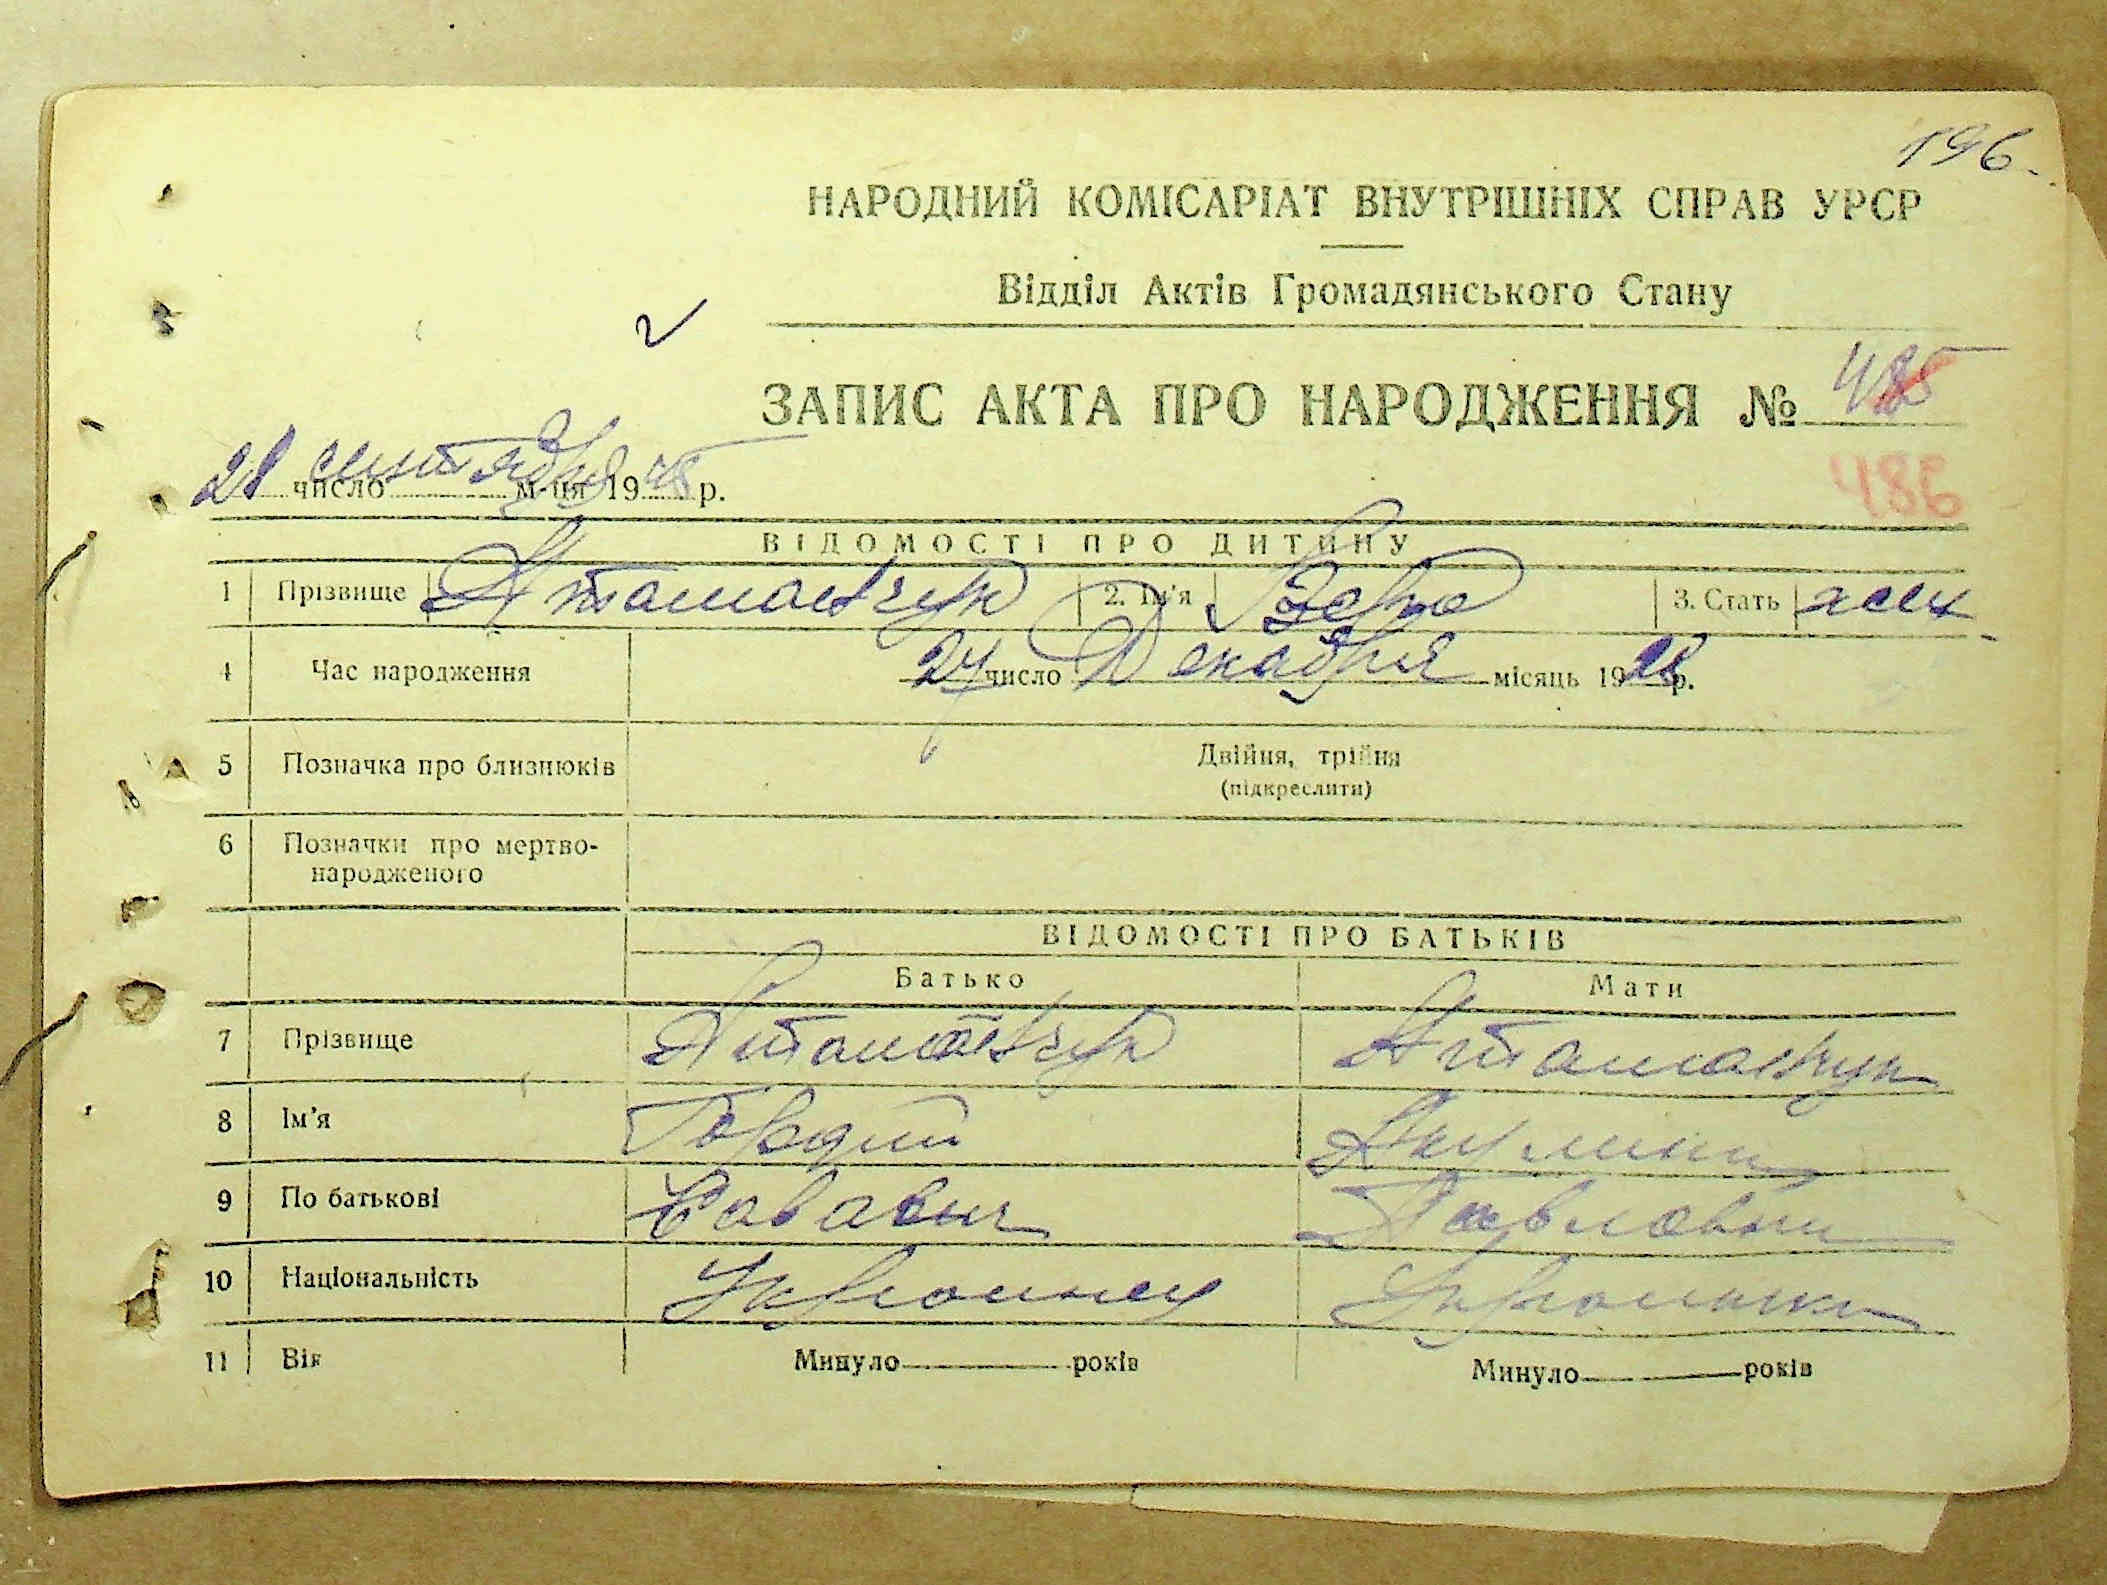 196.
НАРОДНИЙ КОМІСАРІАТ ВНУТРІШНІХ СПРАВ УРСР
Відділ Актів Громадянського Стану
ЗАПИС АКТА ПРО НАРОДЖЕННЯ № 485
486
28 число сентября м-ця 1945 р.
ВІДОМОСТІ ПРО ДИТИНУ
1 Прізвище Атаманчук 2. Ім'я Вера 3. Стать жен
4 Час народження 27 число Декабря місяць 1928 р.
5 Позначка про близнюків Двійня, трійня
(підкреслити)
6 Позначки про мертво-
народженого
ВІДОМОСТІ ПРО БАТЬКІВ
Батько Мати
7 Прізвище Атаманчук Атаманчук
8 Ім'я Гордий Акулина
9 По батькові Савович Павловна
10 Національність Украинец Украинка
11 Вік Минуло років Минуло років